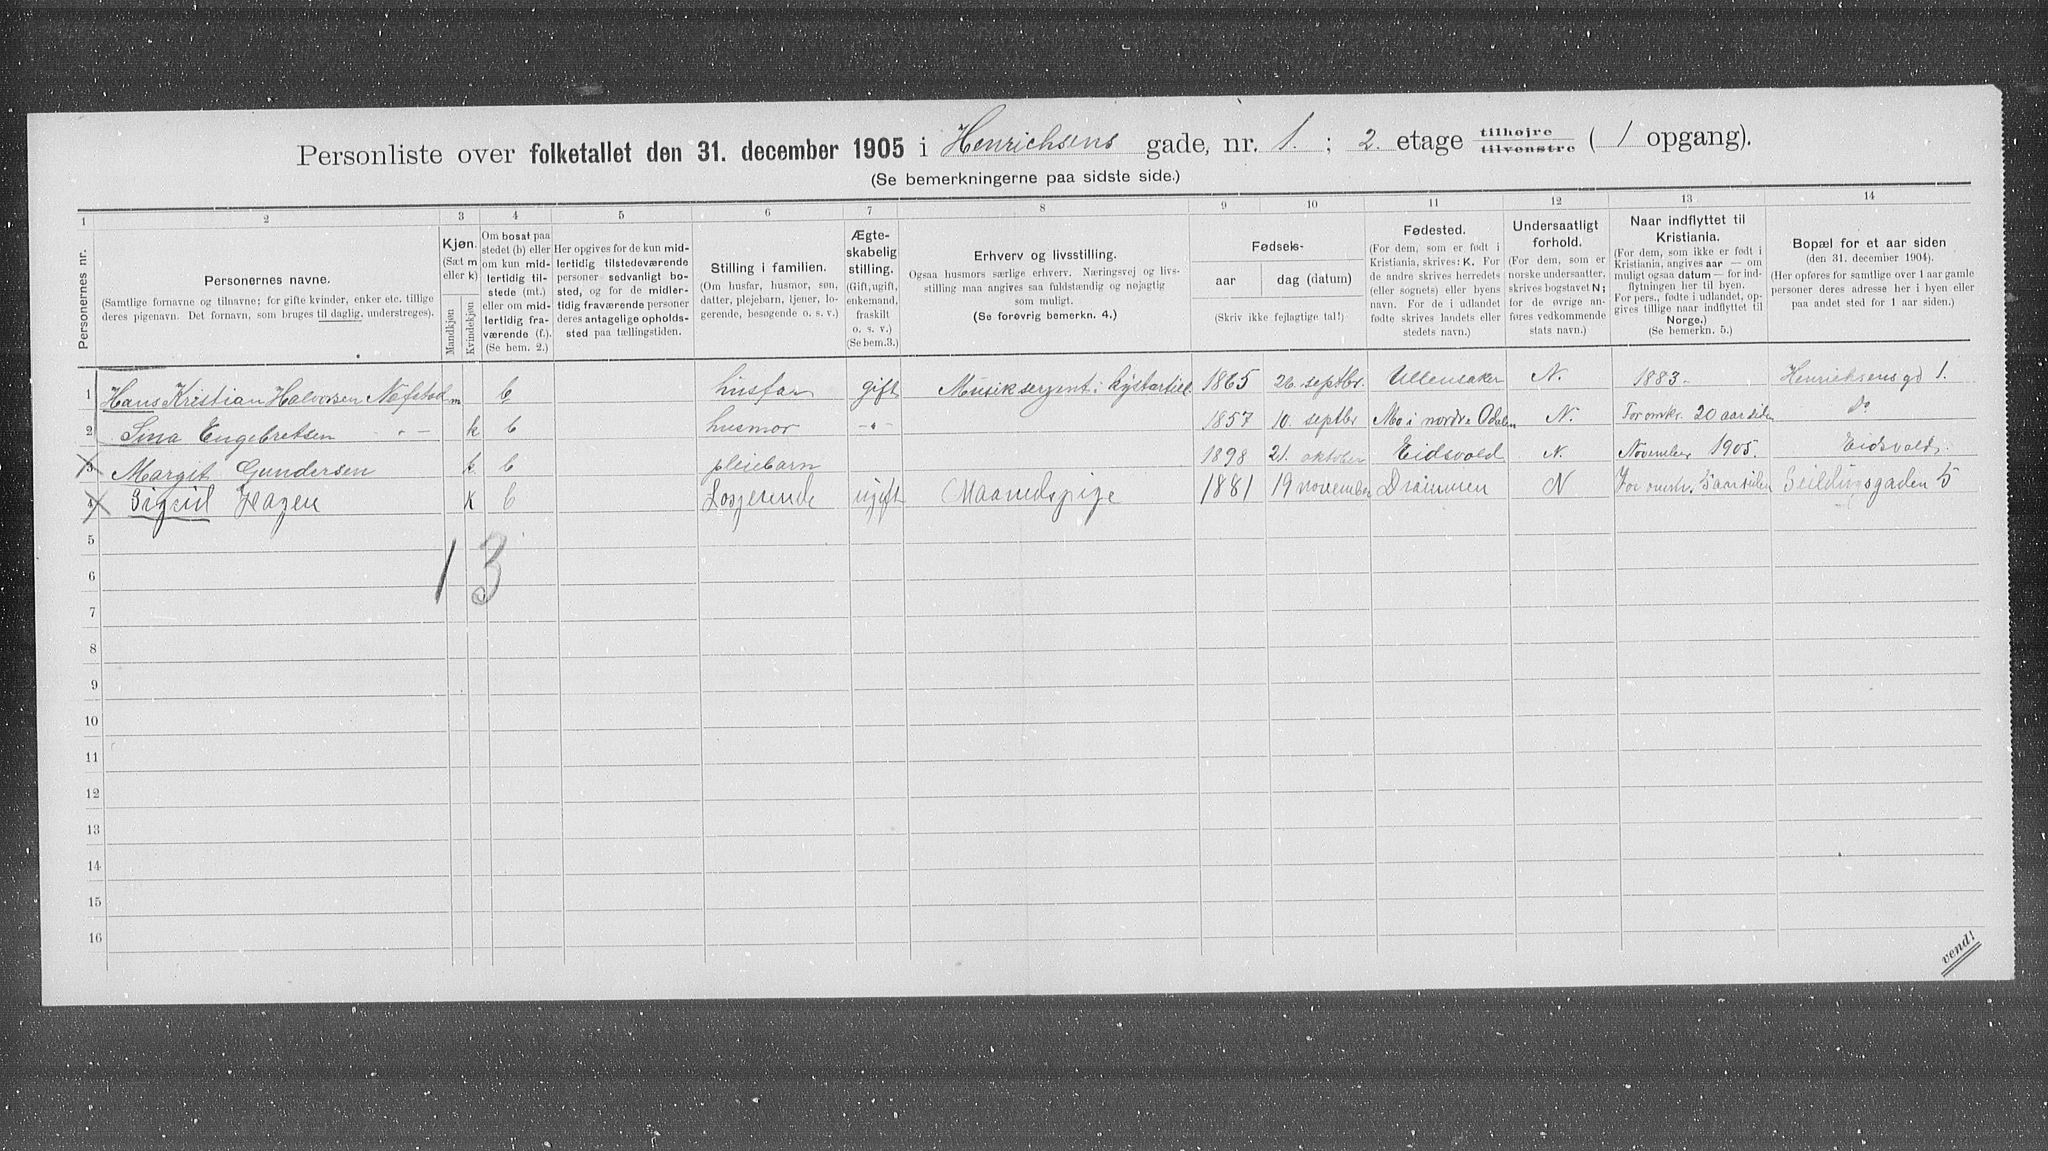 Personliste over folketallet den 31. december 1905 i Henrichsens gade, nr. 1. ; 2. etage tilhøjre tilvenstre ( 1 opgang).
(Se bemerkningerne paa sidste side.)
1 2 3 4 5 6 7 8 9 10 11 12 13 14
Personernes nr.
Personernes navne.
(Samtlige fornavne og tilnavne; for gifte kvinder, enker etc. tillige
deres pigenavn. Det fornavn, som bruges til daglig, understreges).
Kjøn.
(Sæt m
eller k)
Mandkjøn
Kvindekjøn
Om bosat paa
stedet (b) eller
om kun mid-
lertidig til-
stede (mt.)
eller om mid-
lertidig fra-
værende (f.).
(Se bem. 2.)
Her opgives for de kun mid-
lertidig tilstedeværende
personer sedvanlig bo-
sted, og for de midler-
tidig fraværende personer
deres antagelige opholds-
sted paa tællingstiden.
Stilling i familien.
(Om husfar, husmor, søn,
datter, plejebarn, tjener, lo-
gerende, besøgende o. s. v.)
Ægte-
skabelig
stilling.
(Gift, ugift,
enkemand,
fraskilt
o. s. v.)
(Se bem.3.)
Erhverv og livsstilling.
Ogsaa husmors særlige erhverv. Næringsvej og livs-
stilling maa angives saa fuldstændig og nøjagtig
som muligt.
(Se forøvrig bemerkn. 4.)
Fødsels-
aar dag (datum)
(Skriv ikke fejlagtige tal!)
Fødested.
(For dem, som er født i
Kristiania, skrives: K. For
de andre skrives herredets
(eller sognets) eller byens
navn. For de i udlandet
fødte skrives landets eller
stedets navn.)
Undersaatligt
forhold.
(For dem, som er
norske undersaatter,
skrives bogstavet N;
for de øvrige an-
føres vedkommende
stats navn.)
Naar indflyttet til
Kristiania.
(For dem, som ikke er født i
Kristiania, angives aar — om
muligt ogsaa datum — for ind-
flytningen her til byen.
For pers., fødte i udlandet, op-
gives tillige naar indflyttet til
Norge.)
(Se bemerkn. 5.)
Bopæl for et aar siden
(den 31. december 1904).
(Her opføres for samtlige over 1 aar gamle
personer deres adresse her i byen eller
paa andet sted for 1 aar siden.)
1 Hans Kristian Halvorsen Nafstad m b husfar gift Musiksergent i kystartill. 1865 26. septbr. Ullensaker N. 1883. Henrichsens gd 1.
2 Sina Engebretsen -"- k b husmor -"- 1857 10. septbr Mo i nordre Odalen N. For omkr. 20 aar siden do
3 Margit Gundersen k b pleiebarn 1898 21. oktober Eidsvold N. November 1905. Eidsvold.
4 Sigrid Hagen k b Losjerende ugift Maanedspige 1881 19 november Drammen N For omtr. aar siden 5
5
6
1 3
7
8
9
10
11
12
13
14
15
16
vend!